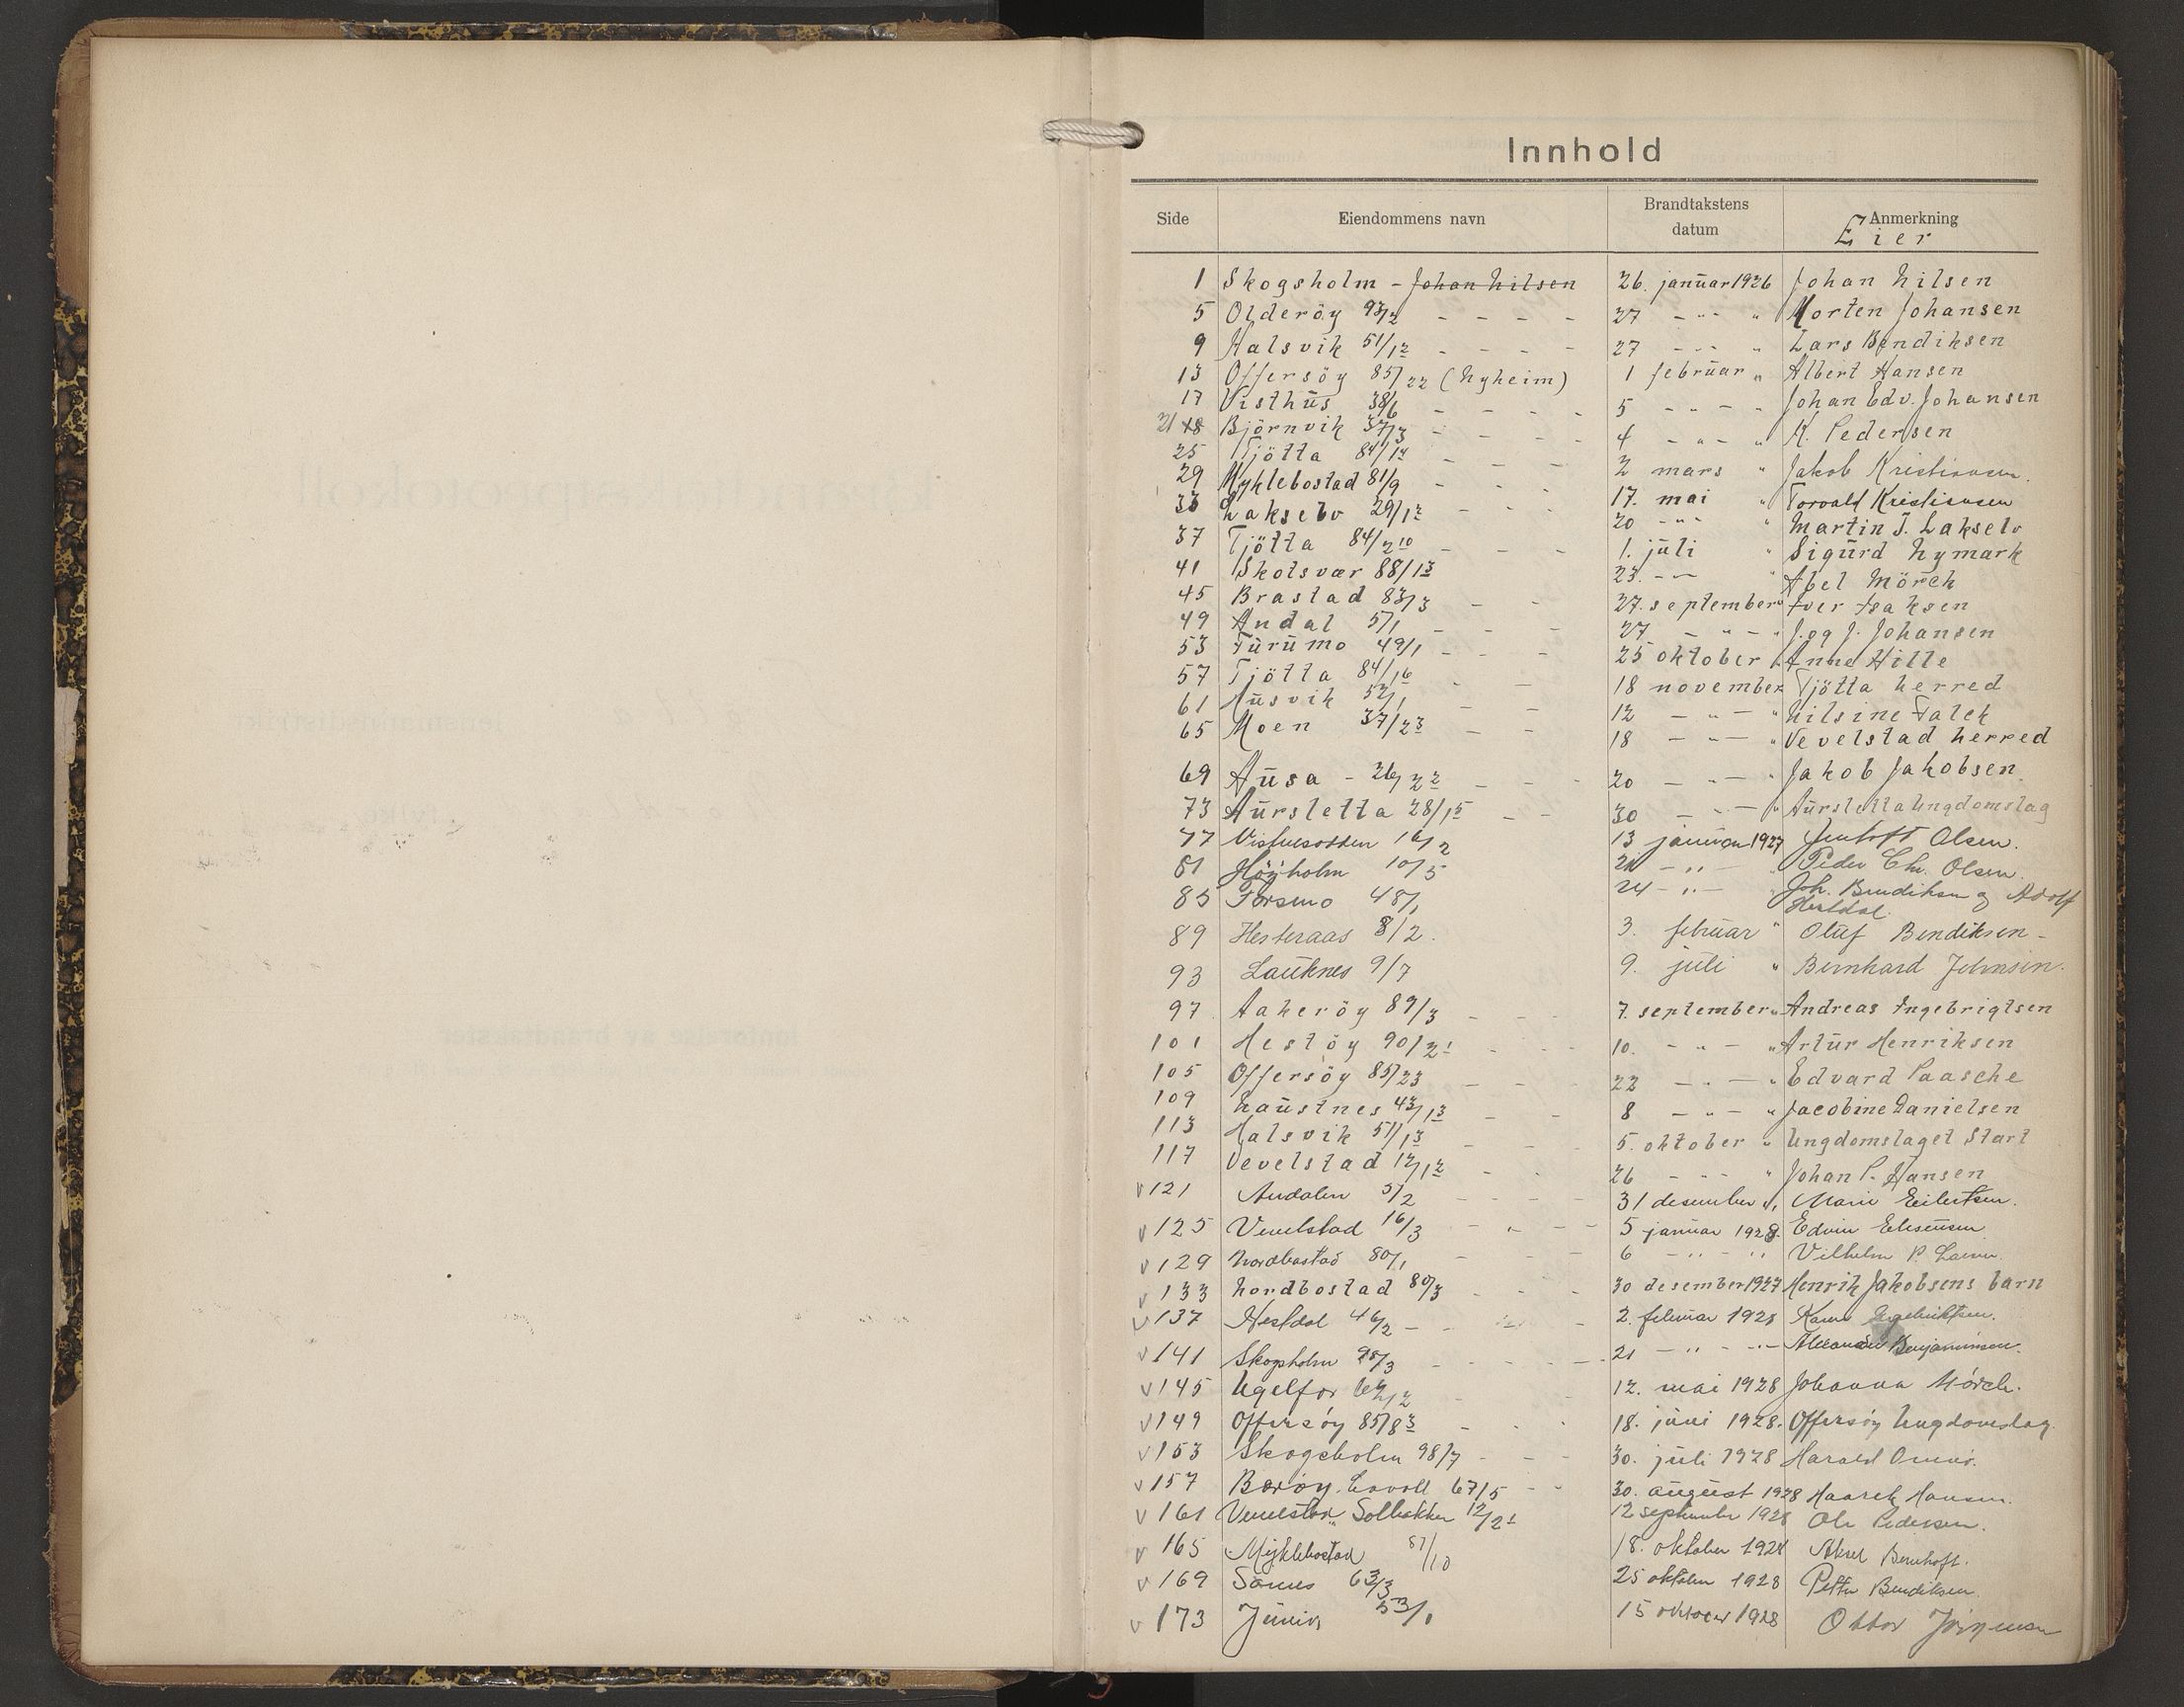 Innhold
Side Eiendommens navn Brandtakstens datum Anmerkning
Eier
1 Skogsholm - Johan Nilsen 26. januar 1926 Johan Nilsen
5 Olderöy 93/2 - - - - 27 - " - " Morten Johansen
9 Halsvik 51/12 - - - - 27 - " - " Lars Bendiksen
13 Offersöy 85/22 (Nyheim) 1 februar " Albert Hansen
17 Visthus 38/6 - - - - 5 - " - " Johan Edv. Johansen
21 18 Björnvik 37/3 - - - - 4 - " - " K. Pedersen
25 Tjötta 84/14 - - - - 2 mars " Jakob Kristiansen.
29 Myklebostad 81/9 - - - 17. mai " Torvald Kristiansen
33 Lakselv 29/12 - - - 20 - " - " Martin J. Lakselv
37 Tjötta 84/210 - - - 1. juli " Sigurd Nymark
41 Skotsvær 88/13 23. - " - " Abel Mörch
45 Brastad 83/3 - - 27. september " Iver Isaksen
49 Andal 5/1 - - - 27 - " - " J. og J. Johansen
53 Furumo 49/1 - - - 25 oktober " Anne Hille
57 Tjötta 84/16 - - 18 november Tjötta herred
61 Husvik 52/1 - - 12 - " - " Nilsine Falch
65 Moen 37/23 - - 18 - " - " Vevelstad herred
69 Ausa - 26/22 - - - 20 - " - " Jakob Jakobsen.
73 Aursletta 28/15 - - 30 - " - " Aursletta Ungdomslag
77 16/2 13 januar 1927 Jentoft Olsen.
81 Höyholm 10/5 21 - " - " Peder Chr. Olsen.
85 Forsmo 48/1 24 - " - " Joh. Bendiksen og Adolf
Hestdal
89 Hesteraas 8/2. 3. februar " Oluf Bendiksen -
93 Lauknes 9/7 9. juli " Bernhard Johnsen.
97 Aakeröy 89/3 - - - 7. september " Andreas Ingebrigtsen
101 Hestöy 90/21 - - - 10. - " - " Artur Henriksen
105 Offersöy 85/23 - - - 22 - " - " Edvard Paasche
109 Naustnes 43/13 - - 8 - " - " Jacobine Danielsen
113 Halsvik 51/13 - - - 5. oktober " Ungdomslaget Start
117 Vevelstad 12/12 - - - 26 - " - " Johan P. Hansen
v 121 Andalen 5/2 - - - - 31 desember " Marie Eilertsen.
v 125 Vevelstad 16/3 - " - - 5 januar 1928. Edvin Eliseussen
v 129 Nordbostad 80/1 - - - 6 - " - " Vilhelm P.
v 133 Nordbostad 80/3 - - - 30 desember 1927 Henrik Jakobsens barn
v 137 Hestdal 46/2 - - - 2. februar 1928 Ingebriktsen.
v 141 Skogsholm 98/3 - - - - 21 - " - " - Alexander Benjaminsen.
v 145 Ugelfor 12. mai 1928 Johanna Mörch.
v 149 Offersöy 85/83 - - - 18. juni 1928. Offersöy Ungdomslag.
v 153 Skogsholm 98/7 - - - 30. juli 1928 Harald
v 157 Boröy. Lovoll 67/5 - - 30. august 1928 Haarek Hansen.
v 161 Vevelstad " Solbakken 12/21 12 september 1928 Ole Pedersen.
v 165 Myklebostad 81/10 18. oktober 1928 Aksel Bernhoft.
v 169 Sörnes 63/3 25 oktober 1928 Petter Bendiksen.
v 173 53/1 15 oktober 1928 Ottar Jörgensen